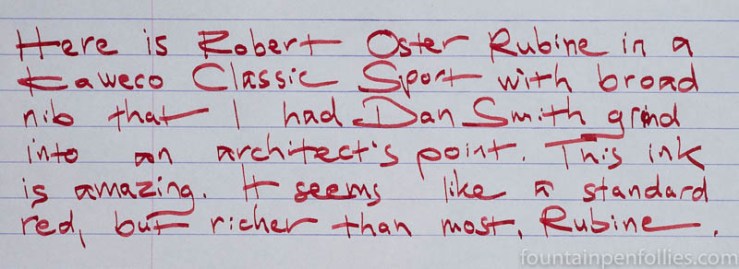 Here is Robert Oster Rubine in a
Kaweco Classic Sport with broad
nib that I had Dan Smith grind
into an architect's point. This ink
is amazing. It seems like a standard
red, but richer than most, Rubine.
fountainpenfollies.com